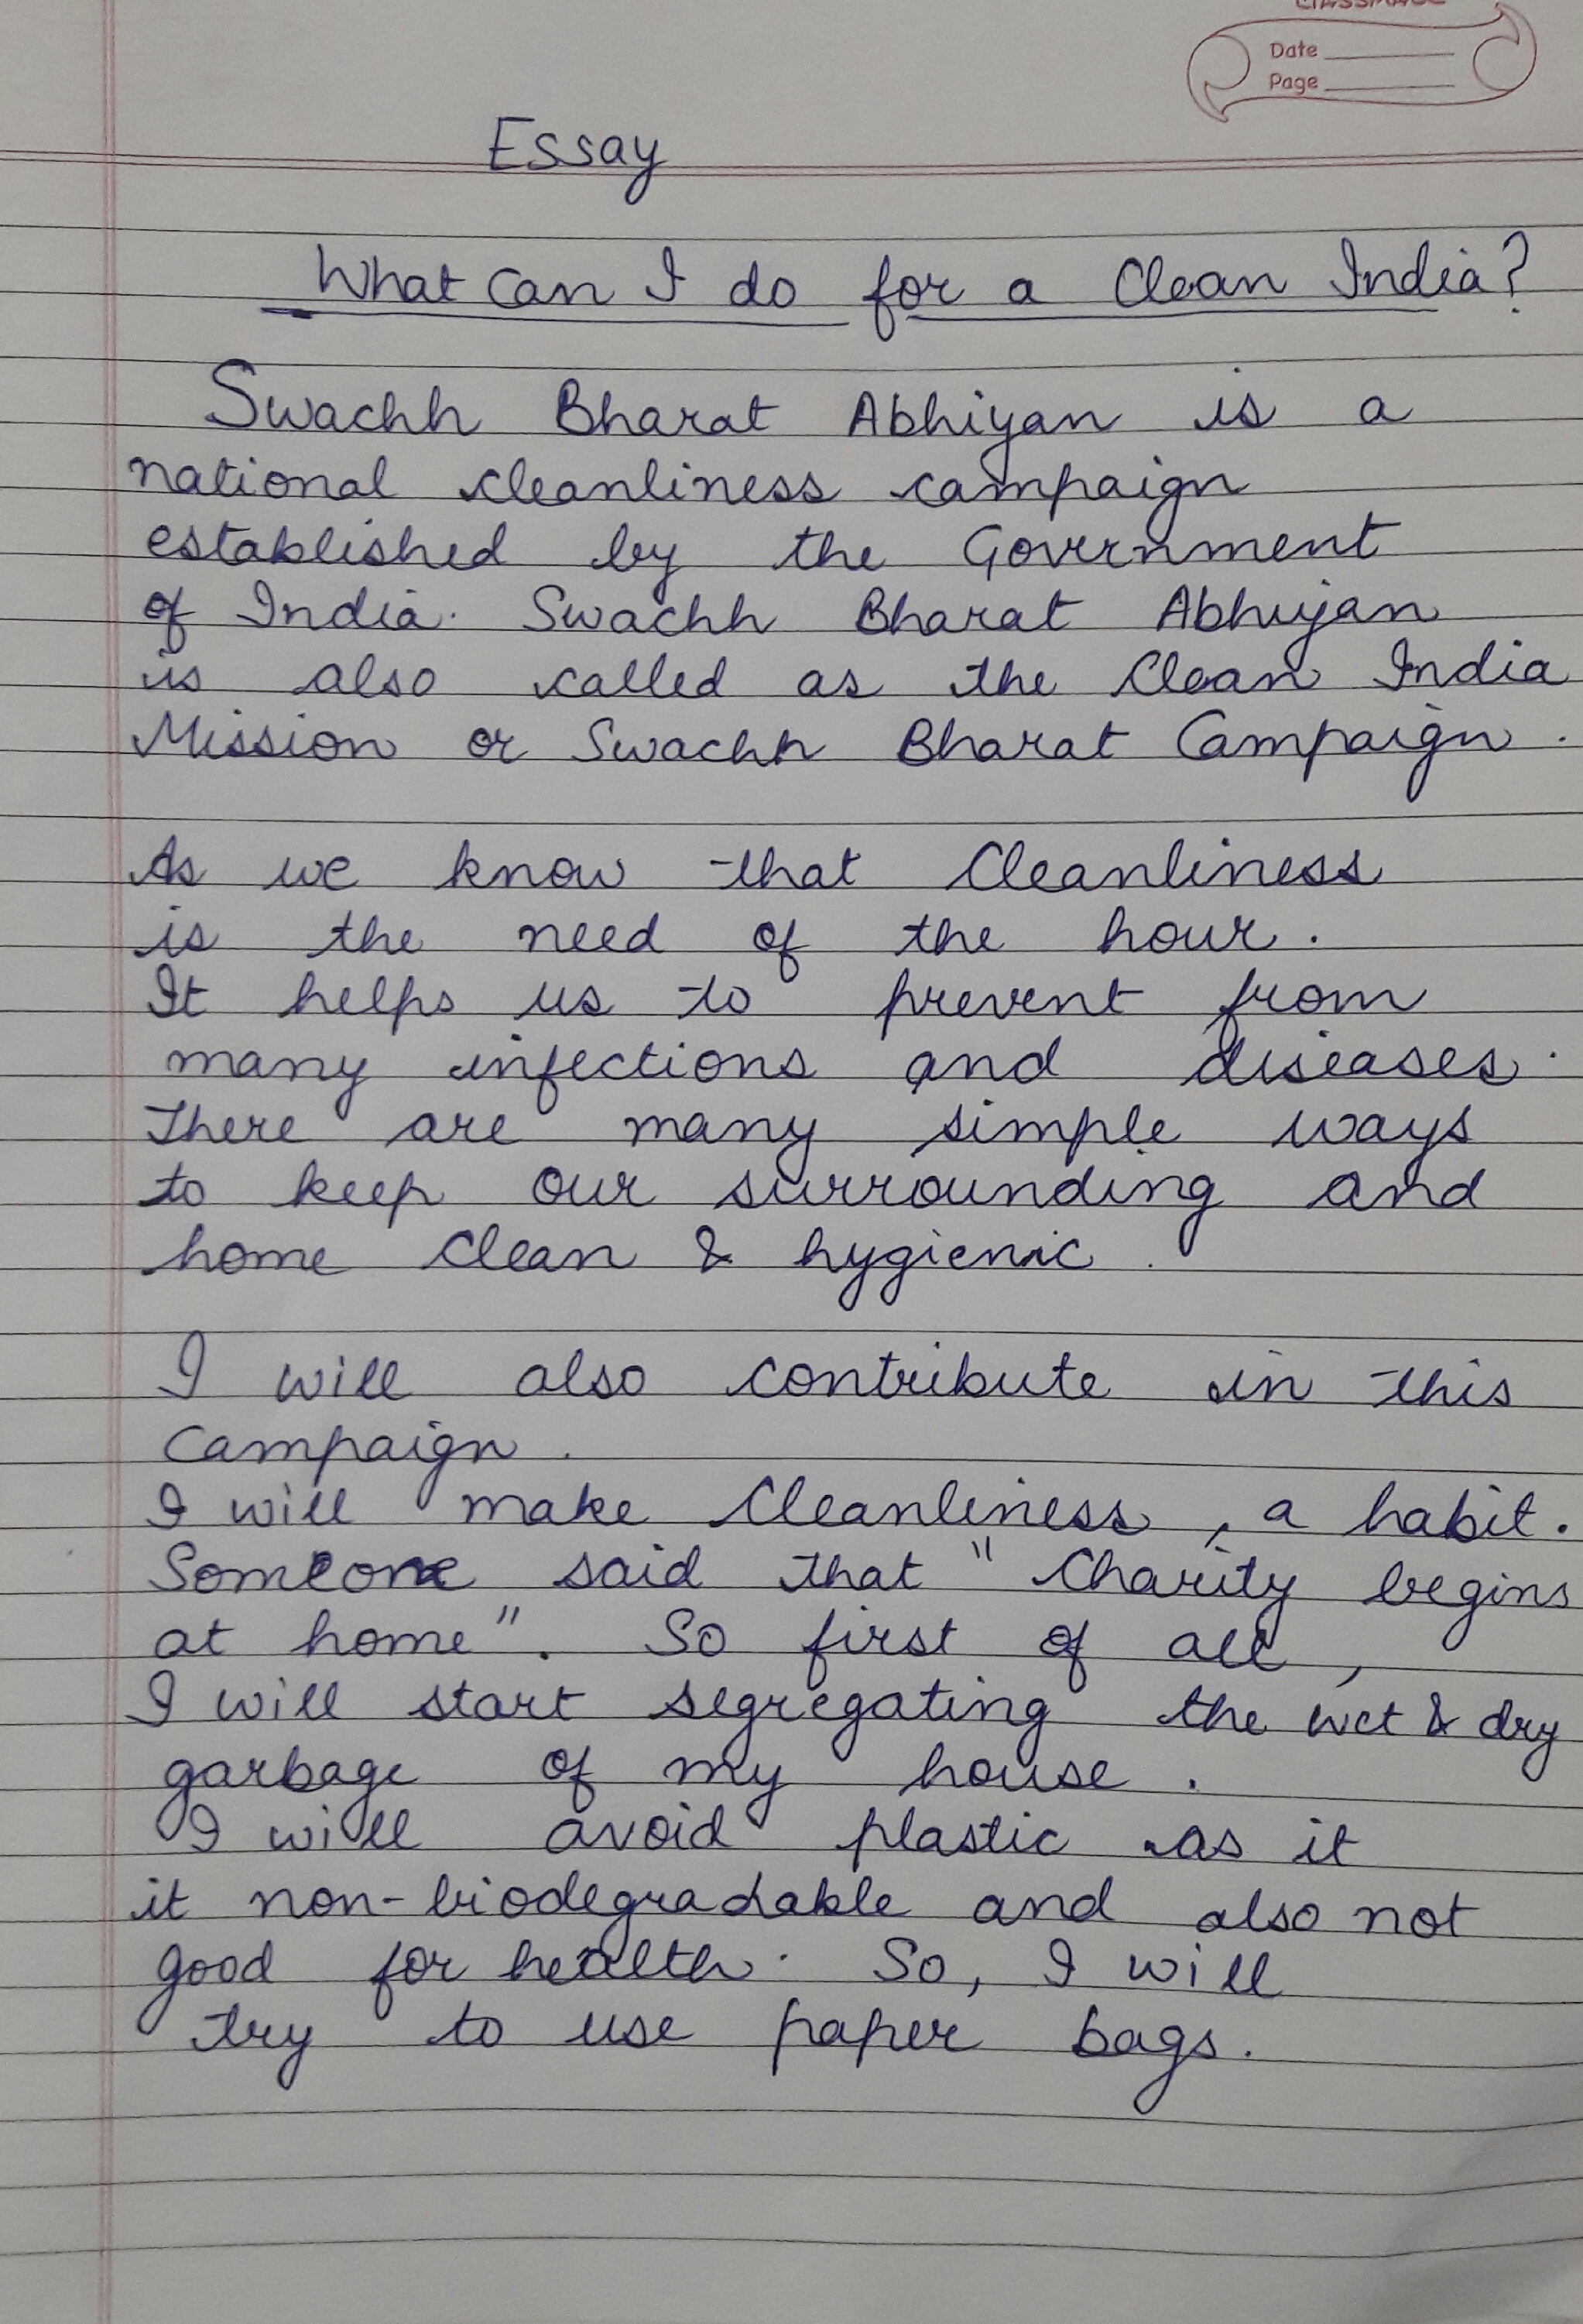 classmate
Date
Page
Essay
What can I do for a Clean India?
Swachh Bharat Abhiyan is a
national cleanliness campaign
established by the Government
of India. Swachh Bharat Abhiyan
is also called as the Clean India
Mission or Swachh Bharat Campaign.
As we know that Cleanliness
is the need of the hour.
It helps us to prevent from
many infections and diseases.
There are many simple ways
to keep our surrounding and
home clean & hygienic.
I will also contribute in this
Campaign.
I will make Cleanliness, a habit.
Someone said that "Charity begins
at home". So first of all,
I will start segregating the wet & dry
garbage of my house.
I will avoid plastic as it
it non-biodegradable and also not
good for health. So, I will
try to use paper bags.